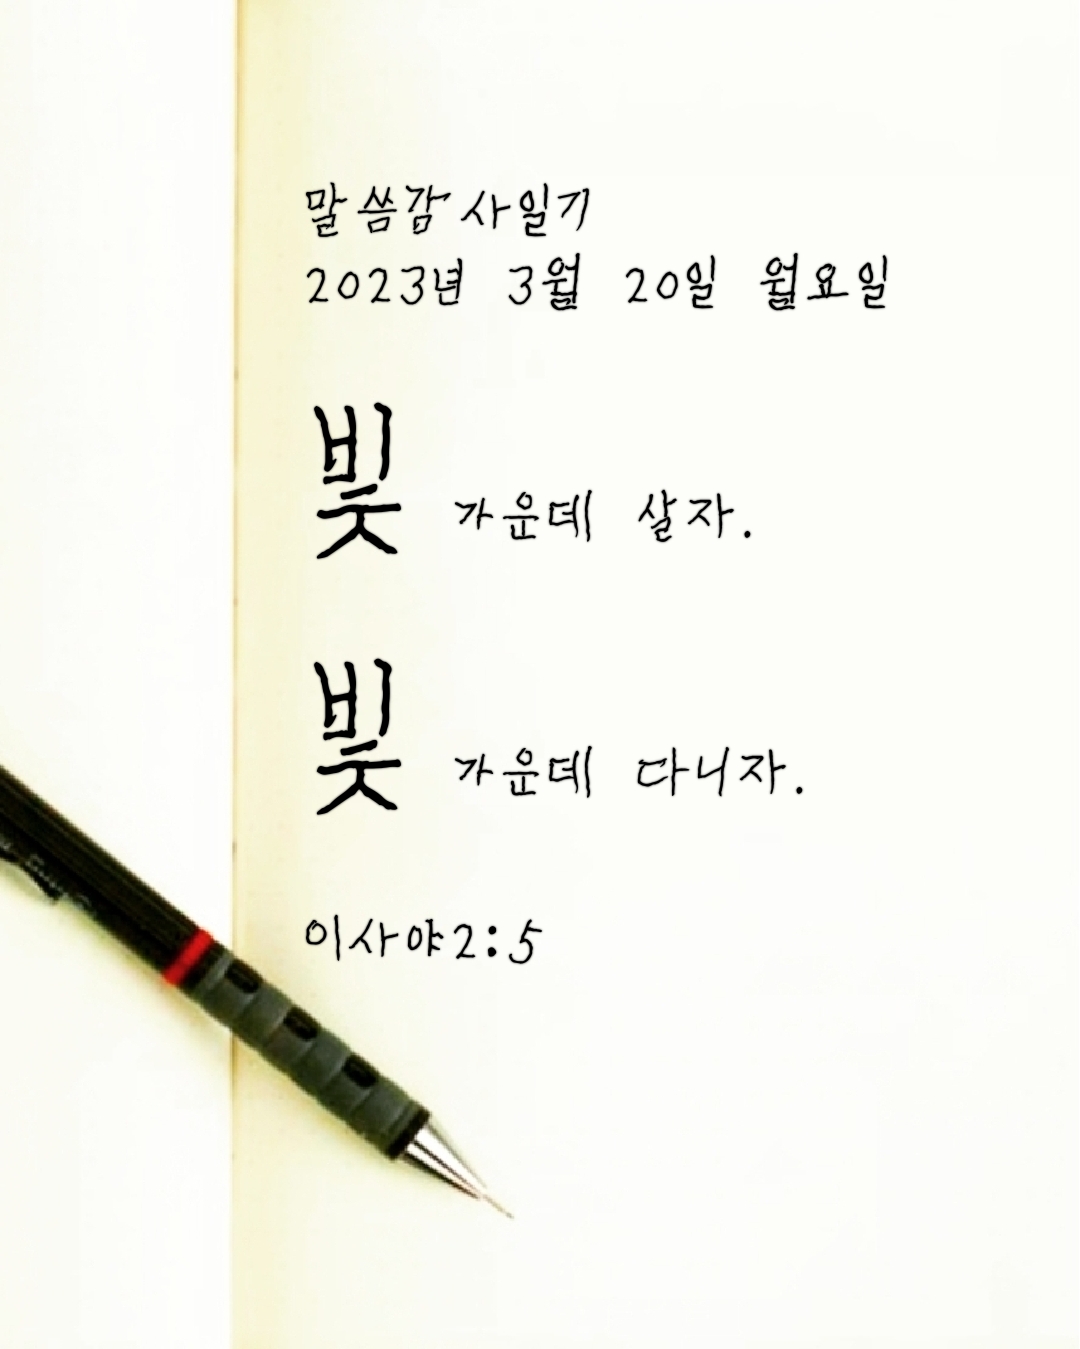 말씀감사일기
2023년 3월 20일 월요일
빛 가운데 살자.
빛 가운데 다니자.
이사야2:5